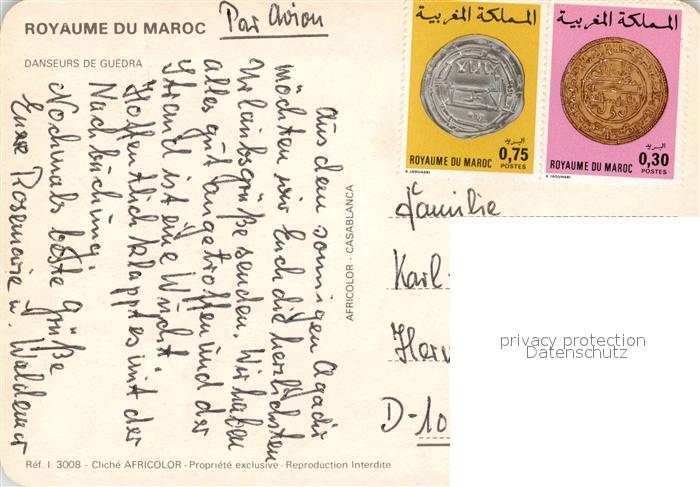 ROYAUME DU MAROC
Par Avion
DANSEURS DE GUÉDRA
Aus dem sonnigen Agadir
möchten wir Euch die herzlichsten
Urlaubsgrüße senden. Wir haben
alles gut angetroffen und der
Strand ist eine Wucht.
Hoffentlich klappt es mit der
Nachbuchung.
Nochmals beste Grüße
Eure Rosemarie u. Waldemar
AFRICOLOR - CASABLANCA
المملكة المغربية
0,75
البريد
ROYAUME DU MAROC
POSTES
A. JAOUHARI
المملكة المغربية
0,30
البريد
ROYAUME DU MAROC
POSTES
A. JAOUHARI
Familie
Karl-
D-10
privacy protection
Datenschutz
Réf. I. 3008 - Cliché AFRICOLOR - Propriété exclusive - Reproduction Interdite